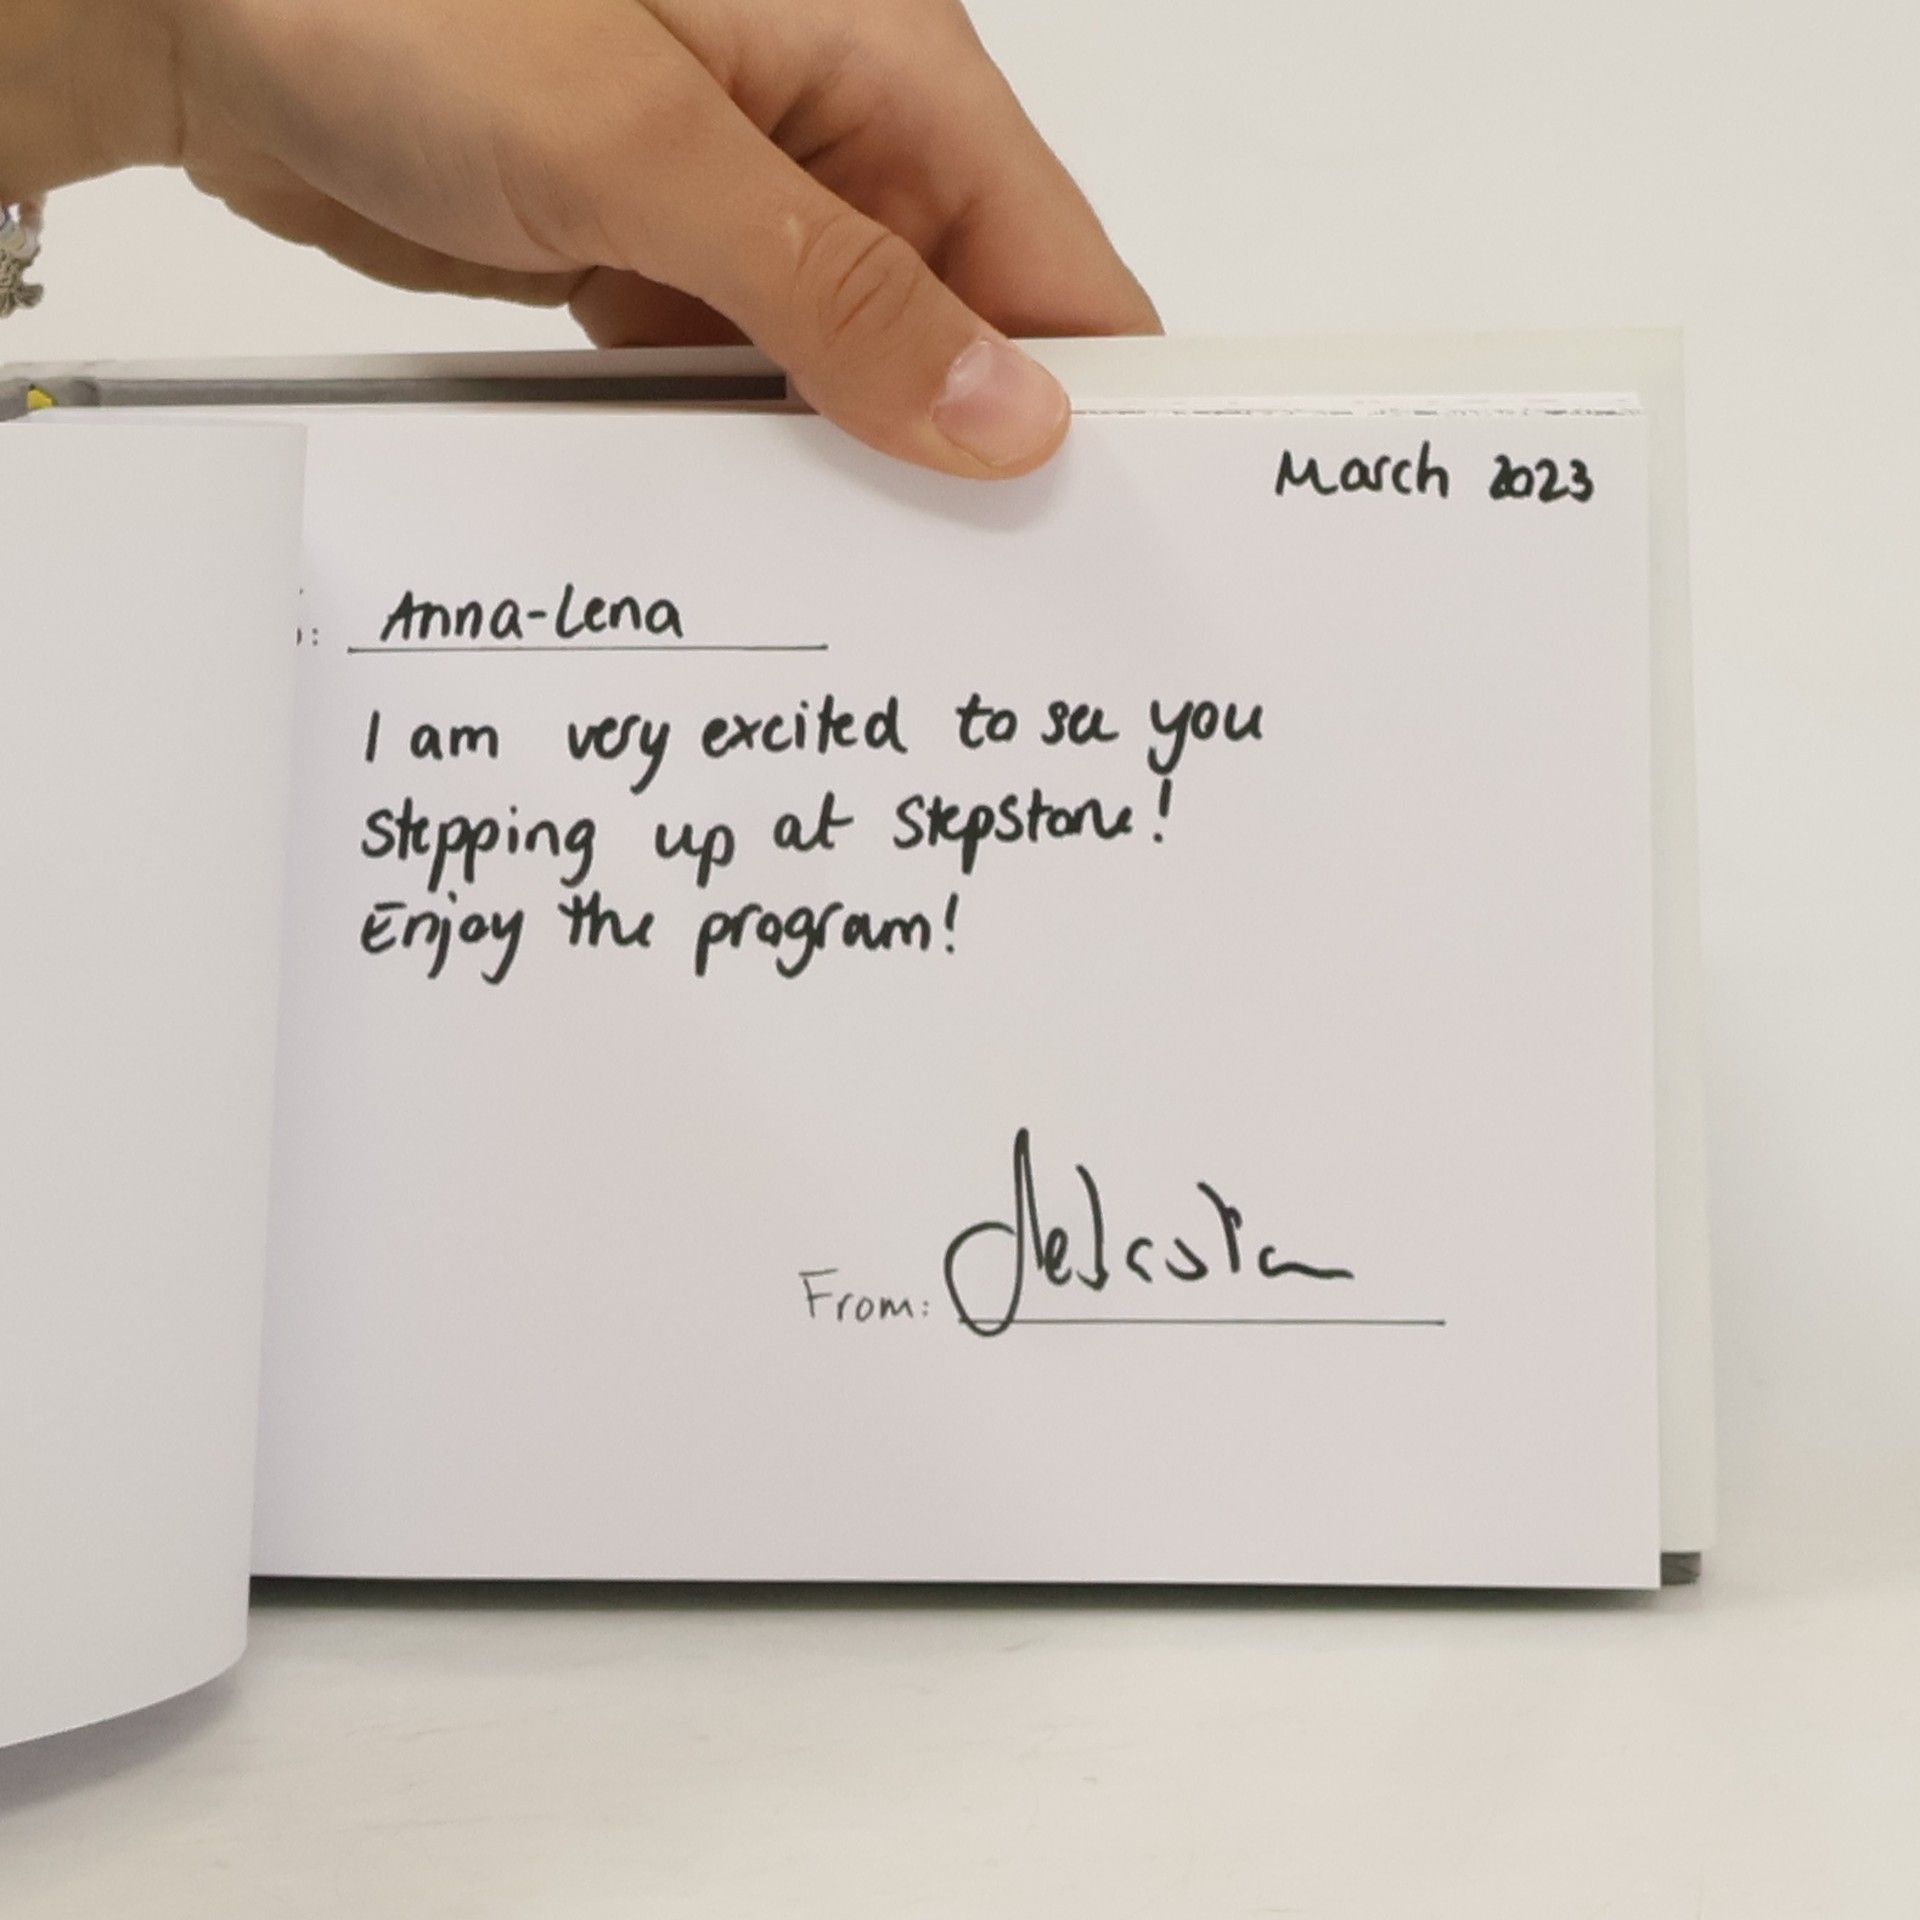 March 2023
Anna-Lena
I am very excited to see you
stepping up at Stepstone!
Enjoy the program!
From: Sebastian